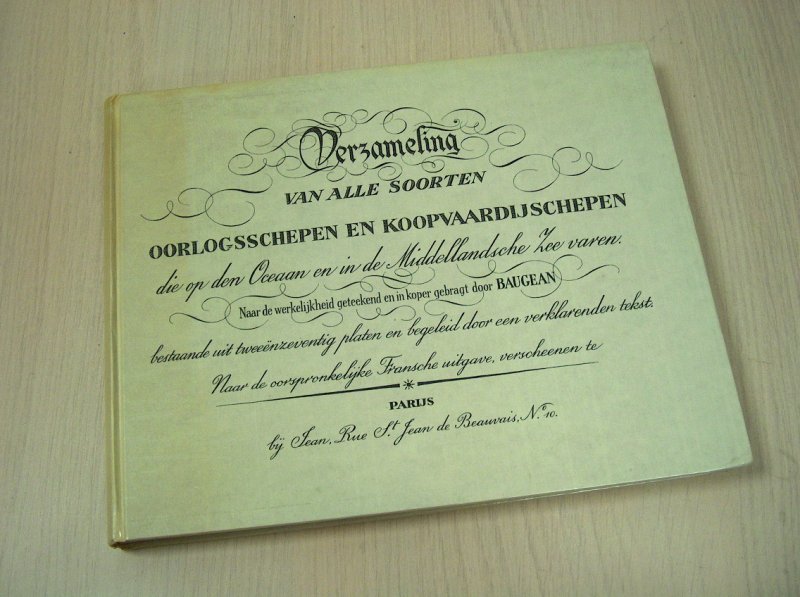 Verzameling
VAN ALLE SOORTEN
OORLOGSSCHEPEN EN KOOPVAARDIJSCHEPEN
die op den Oceaan en in de Middellandsche Zee varen.
Naar de werkelijkheid geteekend en in koper gebragt door BAUGEAN
bestaande uit tweeënzeventig platen en begeleid door een verklarenden tekst.
Naar de oorspronkelijke Fransche uitgave, verscheenen te
PARIJS
bÿ Jean, Rue St. Jean de Beauvais, No. 10.